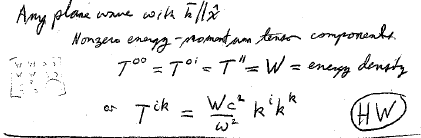 Any plane wave with k̄ // x̂
Nonzero energy-momentum tensor components.
T⁰⁰ = T⁰ⁱ = T¹¹ = W = energy density
or Tⁱᵏ = Wc²/ω² kⁱkᵏ
HW